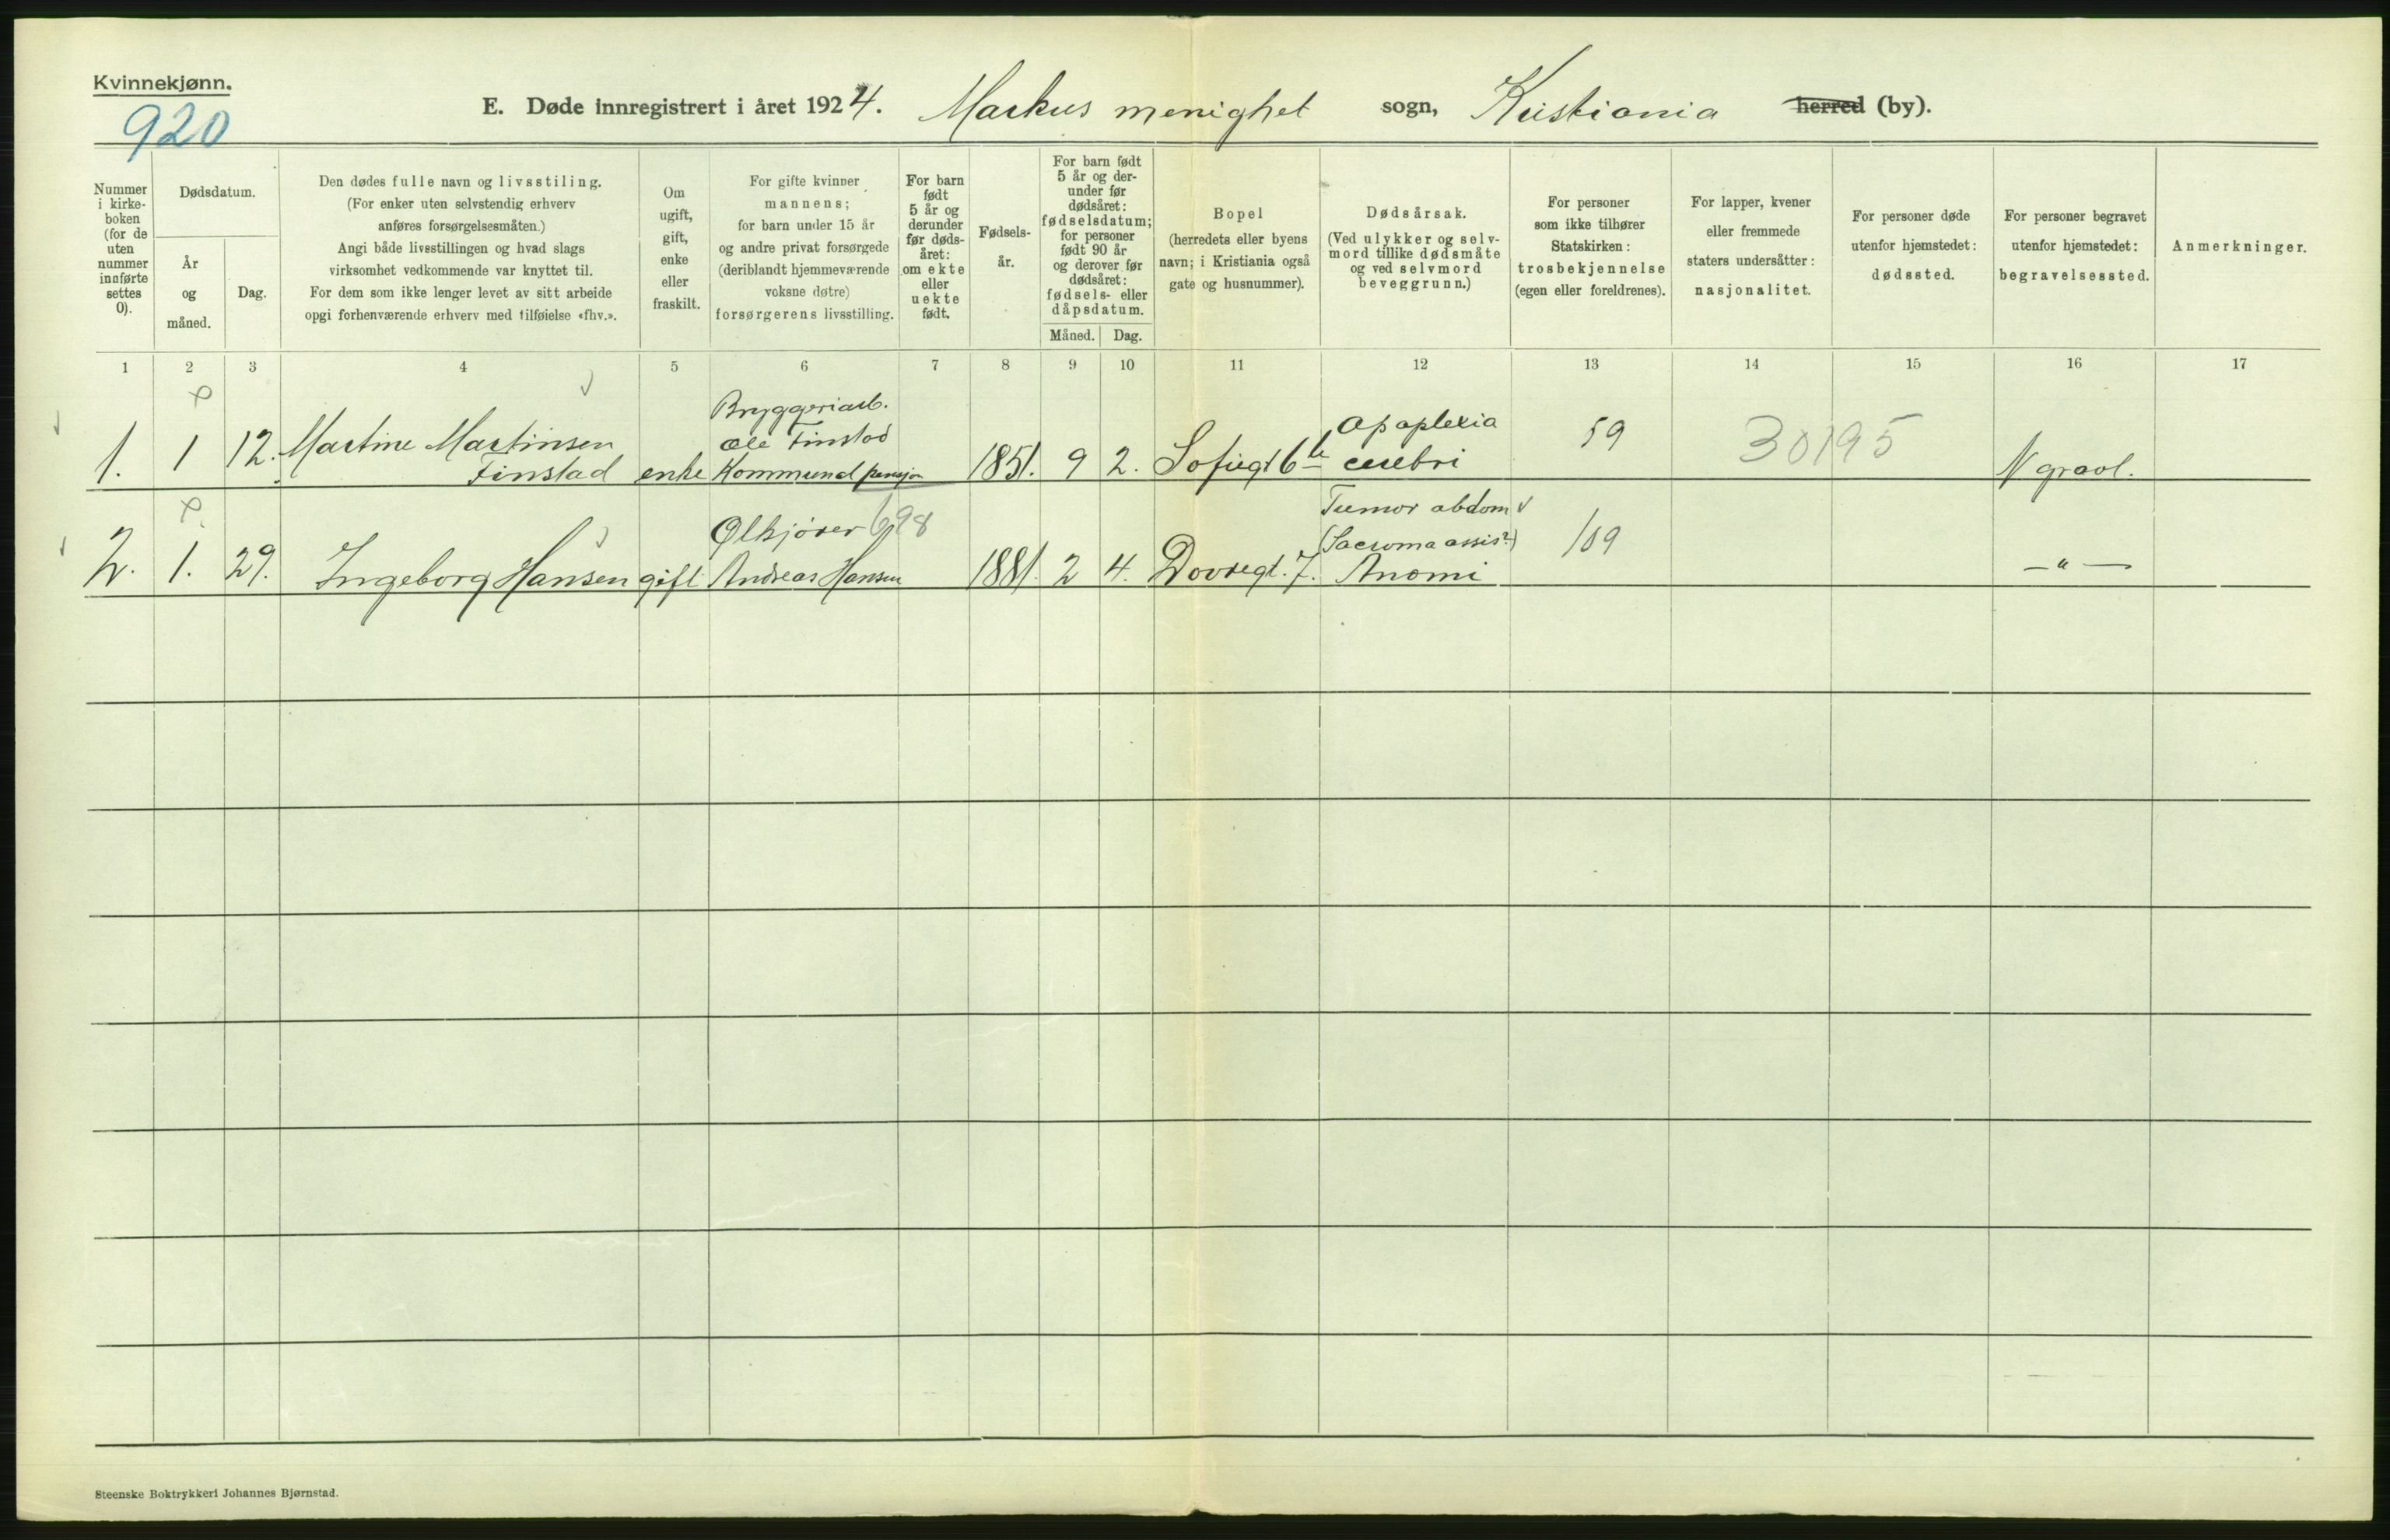 Kvinnekjønn.
920
E. Døde innregistrert i året 1924. Markus menighet sogn, Kristiania herred (by).
Nummer i kirke-boken (for de uten nummer innførte settes 0).
Dødsdatum.
År og måned.
Dag.
Den dødes fulle navn og livsstiling.
(For enker uten selvstendig erhverv
anføres forsørgelsesmåten.)
Angi både livsstillingen og hvad slags
virksomhet vedkommende var knyttet til.
For dem som ikke lenger levet av sitt arbeide
opgi forhenværende erhverv med tilføielse «fhv.».
Om
ugift,
gift,
enke
eller
fraskilt.
For gifte kvinner
mannens;
for barn under 15 år
og andre privat forsørgede
(deriblandt hjemmeværende
voksne døtre)
forsørgerens livsstilling.
For barn
født
5 år og
derunder
før døds-
året:
om ekte
eller
uekte
født.
Fødsels-
år.
For barn født
5 år og der-
under før
dødsåret:
fødselsdatum;
for personer
født 90 år
og derover før
dødsåret:
fødsels- eller
dåpsdatum.
Måned. Dag.
Bopel
(herredets eller byens
navn; i Kristiania også
gate og husnummer).
Dødsårsak.
(Ved ulykker og selv-
mord tillike dødsmåte
og ved selvmord
beveggrunn.)
For personer
som ikke tilhører
Statskirken:
trosbekjennelse
(egen eller foreldrenes).
For lapper, kvener
eller fremmede
staters undersåtter:
nasjonalitet.
For personer døde
utenfor hjemstedet:
dødssted.
For personer begravet
utenfor hjemstedet:
begravelsessted.
Anmerkninger.
1 2 3 4 5 6 7 8 9 10 11 12 13 14 15 16 17
1. 1 12. Martine Martinsen
Finstad enke
Bryggeriarb.
Ole Finstad
Kommunal pensjon
1851. 9 2. Sofiegt 6
Apoplexia
cerebri
59
30195
N gravl.
2. 1. 29. Ingeborg Hansen gift
Ølkjører 698
Andreas Hansen
1881. 2 4. Dovregt. 7.
Tumor abdom
Anæmi
109
—"—
Steenske Boktrykkeri Johannes Bjørnstad.